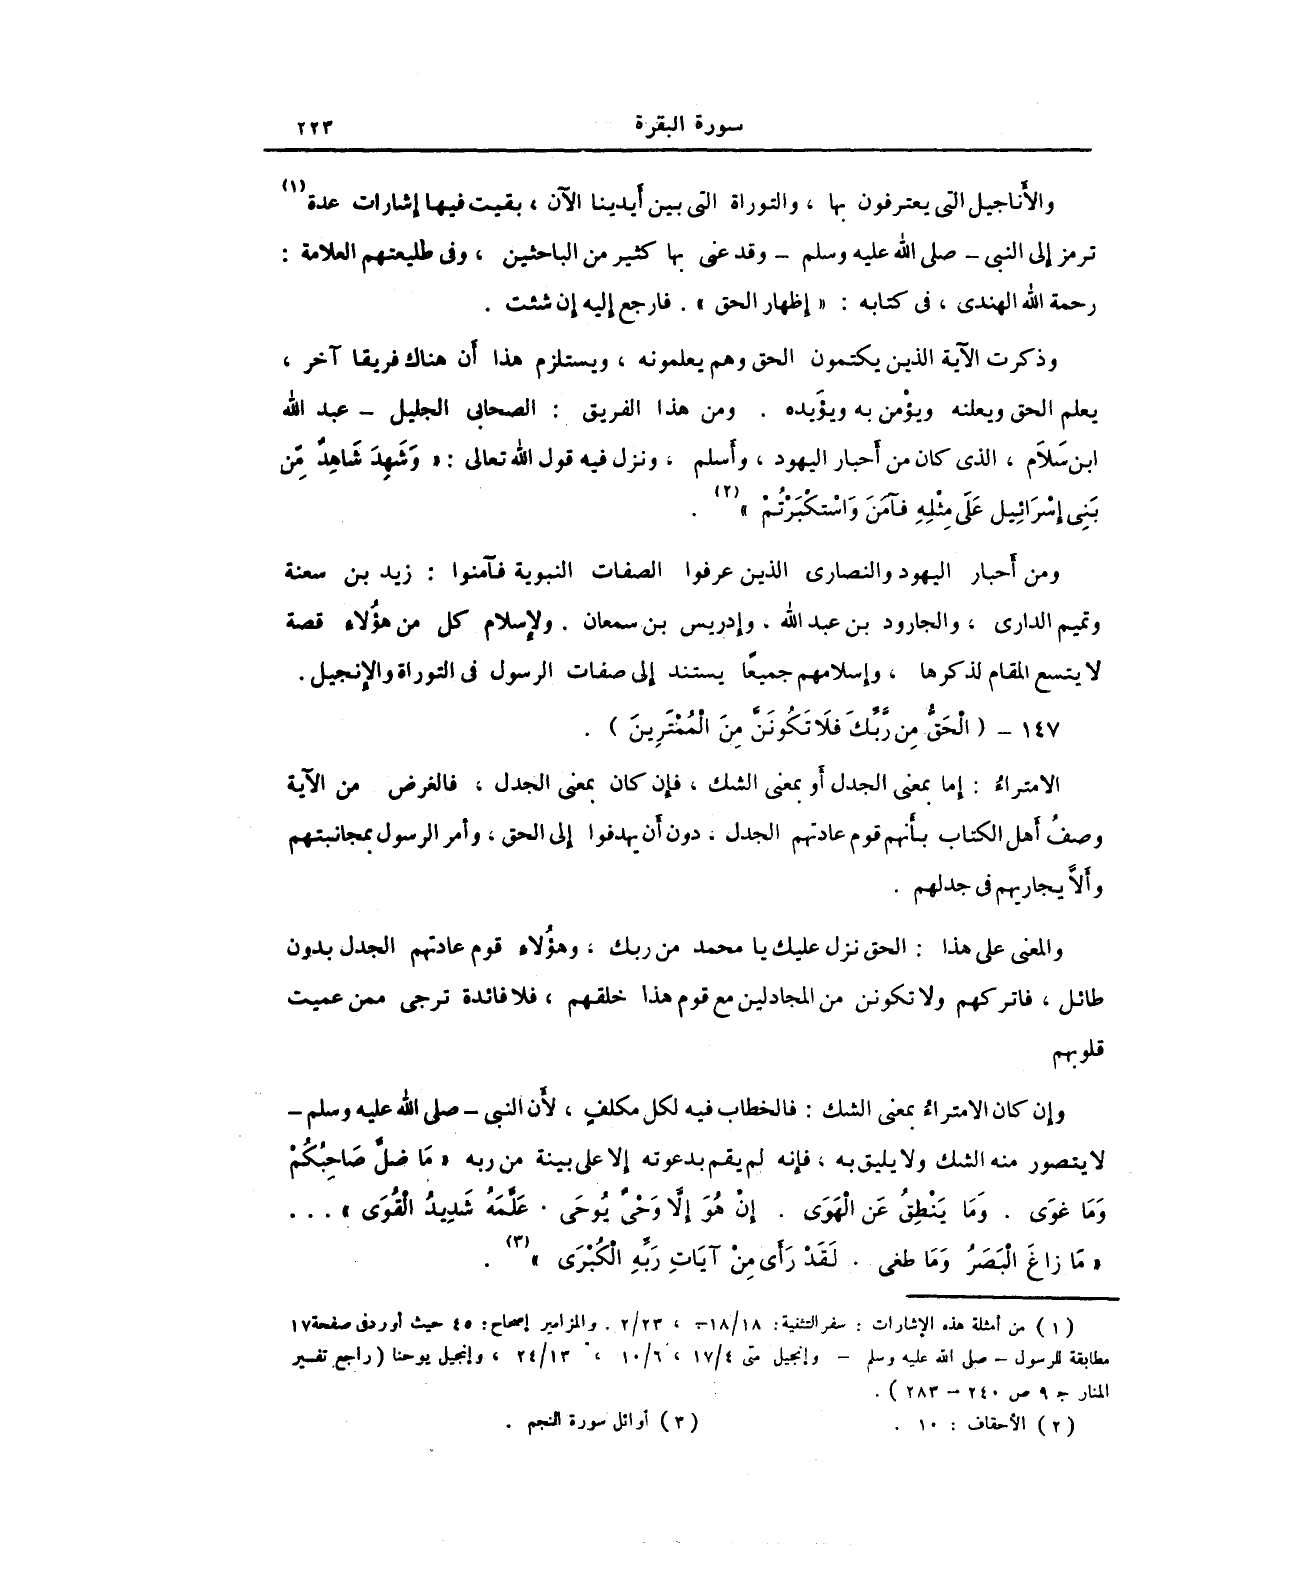 سورة البقرة ٢٢٣
والأناجيل التى يعترفون بها ، والتوراة التى بين أيدينا الآن ، بقيت فيها إشارات عدة(١)
ترمز إلى النبى – صلى الله عليه وسلم – وقد عنى بها كثير من الباحثين ، وفى طليعتهم العلامة :
رحمة الله الهندى ، فى كتابه : « إظهار الحق » . فارجع إليه إن شئت .
وذكرت الآية الذين يكتمون الحق وهم يعلمونه ، ويستلزم هذا أن هناك فريقا آخر ،
يعلم الحق ويعلنه ويؤمن به ويؤيده . ومن هذا الفريق : الصحابى الجليل – عبد الله
ابن سَلَام ، الذى كان من أحبار اليهود ، وأسلم ، ونزل فيه قول الله تعالى : « وَشَهِدَ شَاهِدٌ مِّن
بَنِى إِسْرَائِيل عَلَى مِثْلِهِ فَآمَنَ وَاسْتكْبَرْتُمْ »(٢) .
ومن أحبار اليهود والنصارى الذين عرفوا الصفات النبوية فآمنوا : زيد بن سعنة
وتميم الدارى ، والجارود بن عبد الله ، وإدريس بن سمعان . ولإسلام كل من هؤلاء قصة
لا يتسع المقام لذكرها ، وإسلامهم جميعًا يستند إلى صفات الرسول فى التوراة والإنجيل .
١٤٧ – ( الْحَقُّ مِن رَّبِّكَ فَلَا تَكُونَنَّ مِنَ الْمُمْتَرِينَ ) .
الامتراءُ : إما بمعنى الجدل أو بمعنى الشك ، فإن كان بمعنى الجدل ، فالغرض من الآية
وصفُ أهل الكتاب بأنهم قوم عادتهم الجدل ، دون أن يهدفوا إلى الحق ، وأمر الرسول بمجانبتهم
وألاَّ يجاريهم فى جدلهم .
والمعنى على هذا : الحق نزل عليك يا محمد من ربك ، وهؤلاء قوم عادتهم الجدل بدون
طائل ، فاتركهم ولا تكونن من المجادلين مع قوم هذا خلقهم ، فلا فائدة ترجى ممن عميت
قلوبهم
وإن كان الامتراءُ بمعنى الشك : فالخطاب فيه لكل مكلفٍ ، لأن النبى – صلى الله عليه وسلم –
لا يتصور منه الشك ولا يليق به ، فإنه لم يقم بدعوته إلا على بينة من ربه « مَا ضلَّ صَاحِبُكُمْ
وَمَا غوَى . وَمَا يَنْطِقُ عَن الْهَوَى . إِنْ هُوَ إِلَّا وَحْىٌ يُوحَى . عَلَّمَهُ شَدِيدُ الْقُوَى » . . .
« مَا زاغَ الْبَصَرُ وَمَا طغى . لَقَدْ رَأَى مِنْ آيَاتِ رَبِّهِ الْكُبْرَى »(٣) .
( ١ ) من أمثلة هذه الإشارات : سفر التثنية : ١٨/١٨– ، ٢/٢٣ . والمزامير إصحاح : ٤٥ حيث أورد فى صفحة ١٧
مطابقة للرسول – صلى الله عليه وسلم – وإنجيل متى ١٧/٤ ، ١٠/٦ ، ٢٤/١٣ ، وإنجيل يوحنا ( راجع تفسير
المنار ج ٩ ص ٢٤٠ – ٢٨٣ ) .
( ٢ ) الأحقاف : ١٠ . ( ٣ ) أوائل سورة النجم .